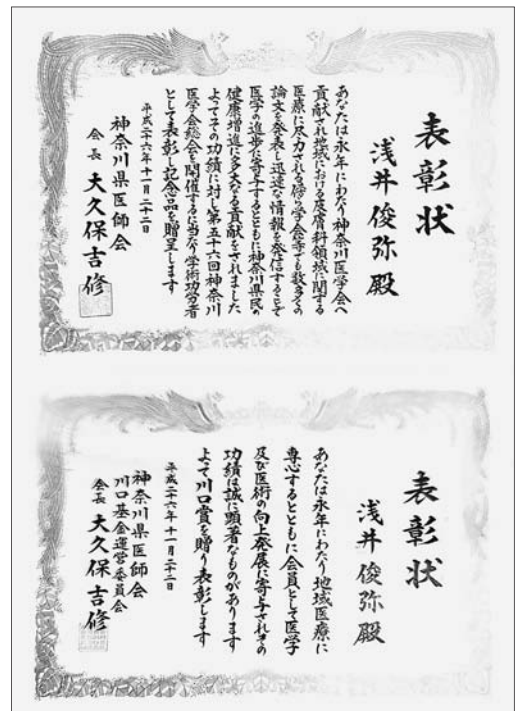 表彰状
浅井俊弥殿
あなたは永年にわたり神奈川医学会へ
貢献され地域における皮膚科領域に関する
医療に尽力される傍ら学会等でも数多くの
論文を発表し迅速な情報を発信することで
医学の進歩に寄与するとともに神奈川県民の
健康増進に多大なる貢献をされました
よってその功績に対し第五十六回神奈川
医学会総会を開催するに当たり学術功労者
として表彰し記念品を贈呈します
平成二十六年十一月二十二日
神奈川県医師会
会長 大久保吉修
表彰状
浅井俊弥殿
あなたは永年にわたり地域医療に
専心するとともに会員として医学
及び医術の向上発展に寄与されその
功績は誠に顕著なものがあります
よって川口賞を贈り表彰します
平成二十六年十一月二十二日
神奈川県医師会
川口基金運営委員会
会長 大久保吉修